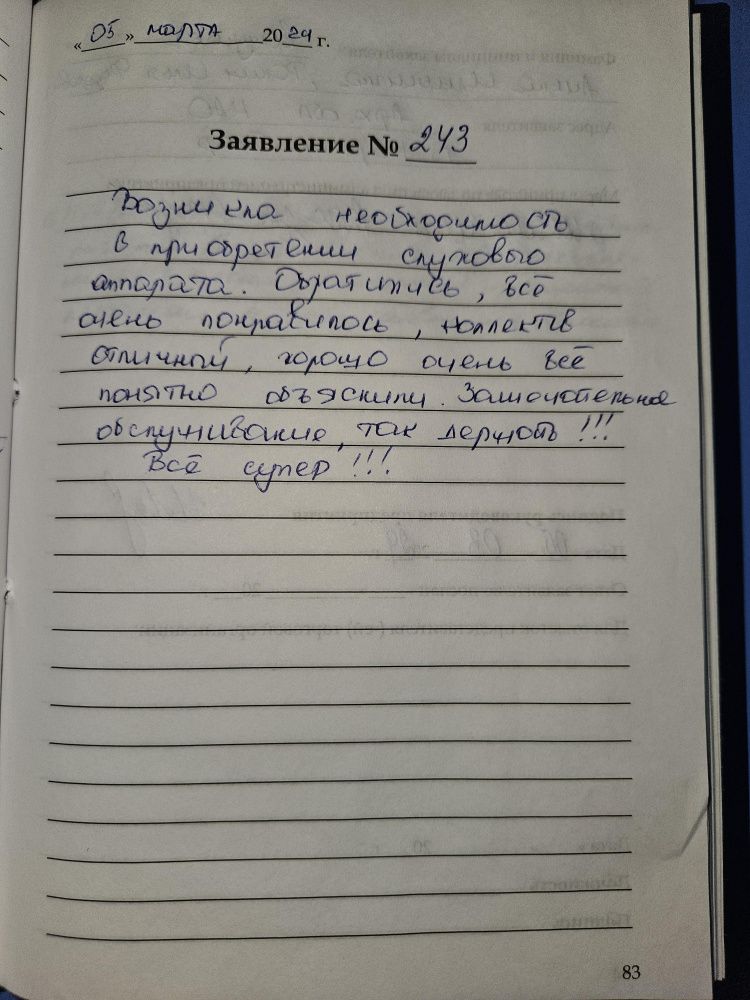 « 05 » марта 2024 г.
Заявление № 243
Возникла необходимость
в приобретении слухового
аппарата. Обратились, всё
очень понравилось, коллектив
отличный, хорошо очень всё
понятно объяснили. Замечательное
обслуживание, так держать !!!
Всё супер !!!
83